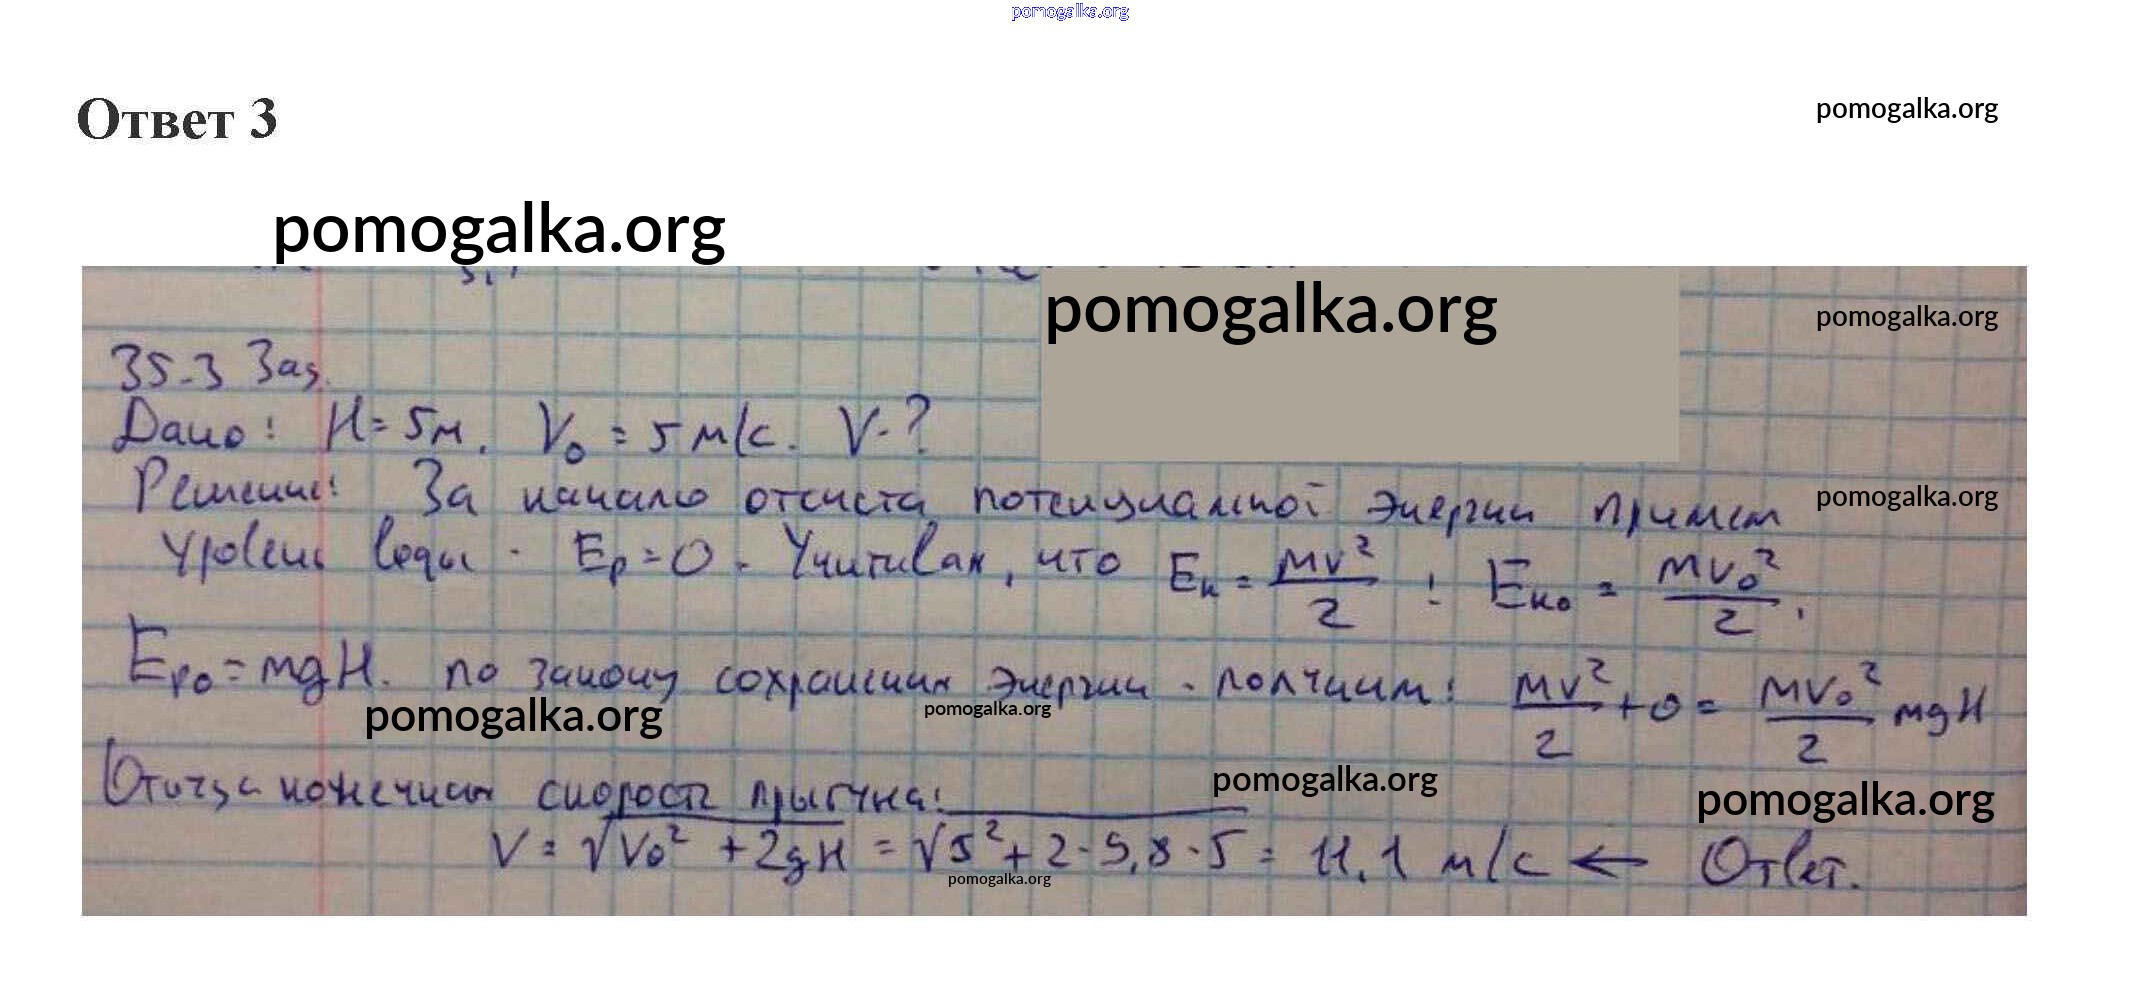 pomogalka.org
Ответ 3
pomogalka.org
pomogalka.org
pomogalka.org
pomogalka.org
35-3 Зад.
Дано: H = 5м. V₀ = 5 м/с. V-?
Решение: За начало отсчета потенциальной энергии примем
pomogalka.org
уровень воды. Eₚ=0. Учитывая, что Eₖ = mv²/2 ; Eₖ₀ = mv₀²/2,
Eₚ₀ = mgH. по закону сохранения энергии. получим: mv²/2 + 0 = mv₀²/2 mgH
pomogalka.org
pomogalka.org
Отсюда скорость прыгуна:
pomogalka.org
pomogalka.org
V = √V₀² + 2gH = √5² + 2·9,8·5 = 11,1 м/с ← Ответ.
pomogalka.org